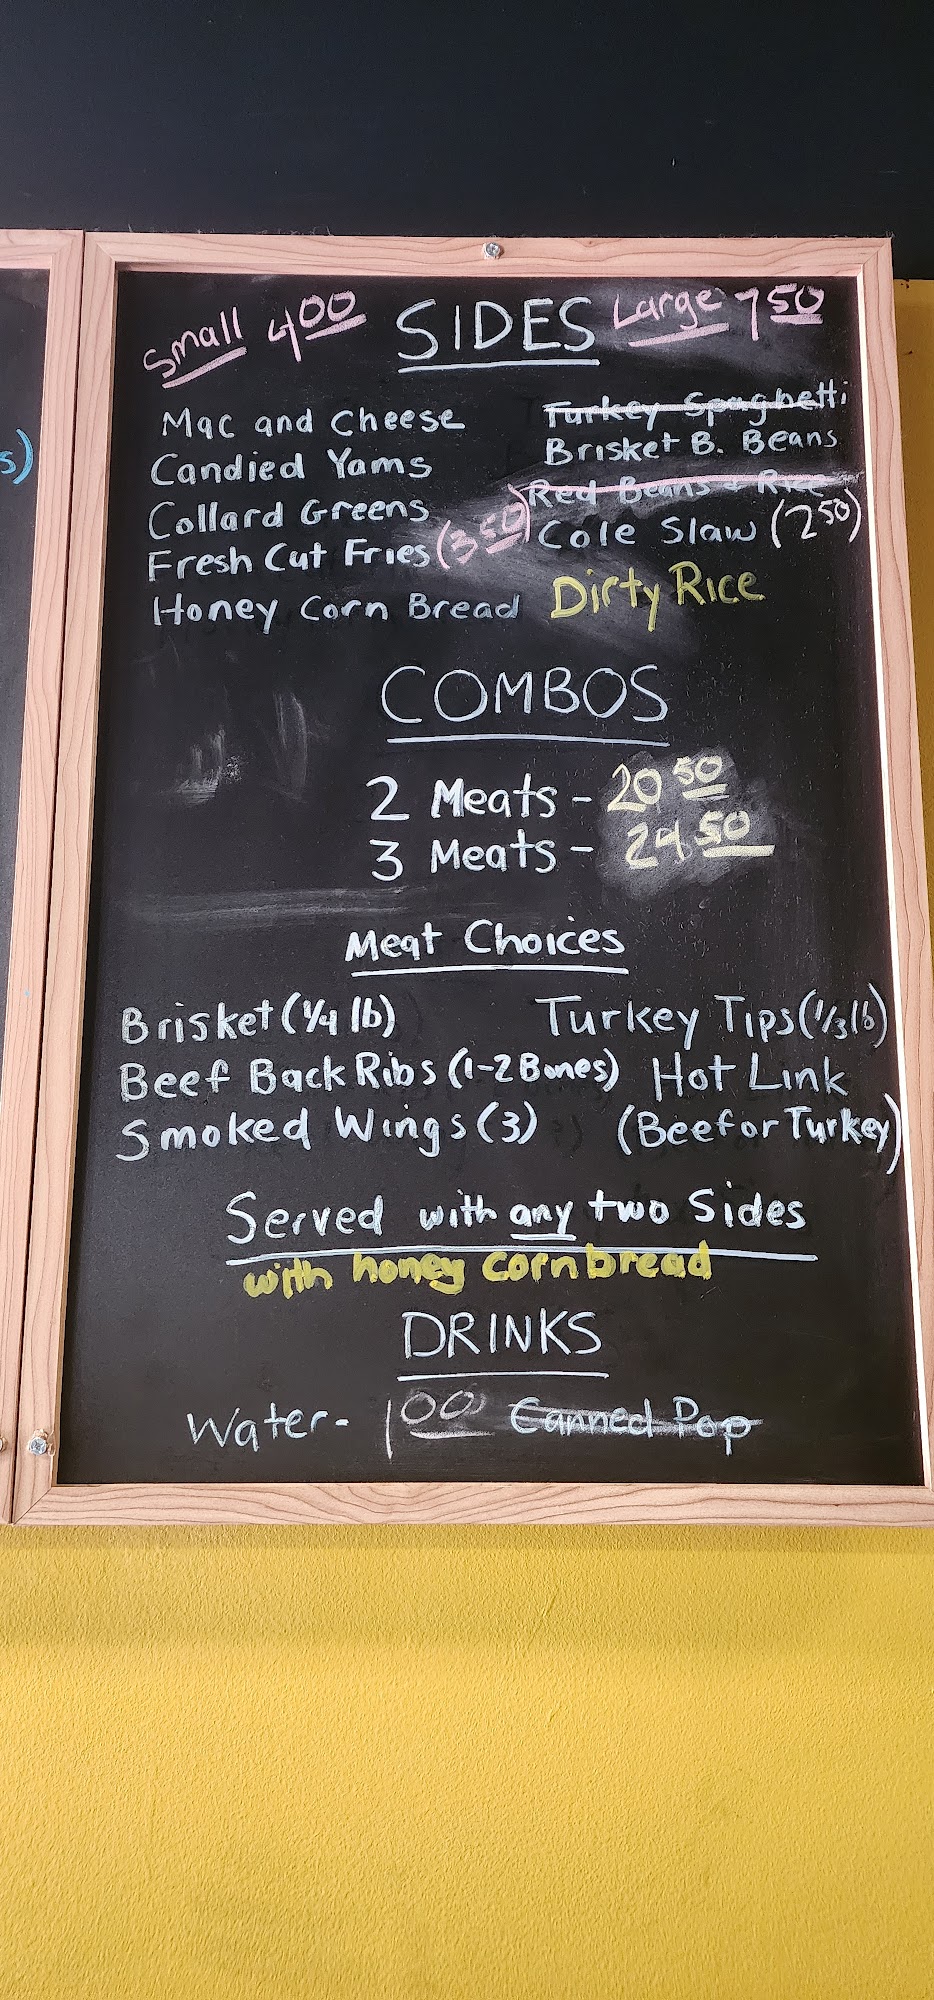 Small 4.00 SIDES Large 7.50
Mac and Cheese Turkey Spaghetti
Candied Yams Brisket B. Beans
Collard Greens Red Beans + Rice
Fresh Cut Fries (3.50) Cole Slaw (2.50)
Honey Corn Bread Dirty Rice
COMBOS
2 Meats - 20 50
3 Meats - 24 50
Meat Choices
Brisket (1/4 lb) Turkey Tips (1/3 lb)
Beef Back Ribs (1-2 Bones) Hot Link
Smoked Wings (3) (Beef or Turkey)
Served with any two Sides
with honey cornbread
DRINKS
Water - 1 00 Canned Pop
s)